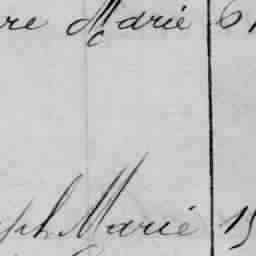 re Marie 6
ph Marie 15